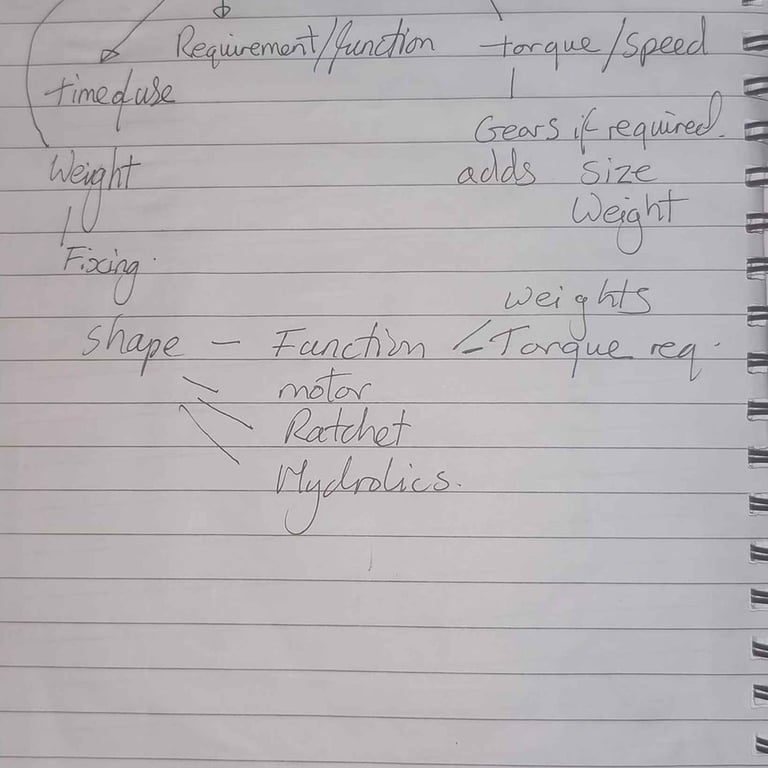 Requirement/function torque/speed
time of use
Gears if required.
Weight adds size
Weight
Fixing.
weights
shape - Function < Torque req.
motor
Ratchet
Hydrolics.